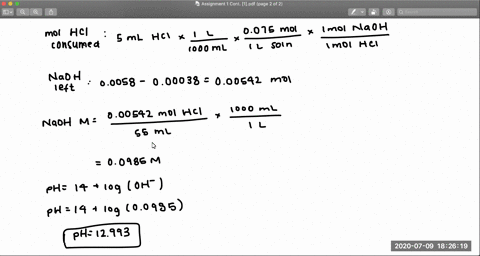 Assignment 1 Cont. (1).pdf (page 2 of 2)
mol HCl consumed : 5 mL HCl × 1 L / 1000 mL × 0.075 mol / 1 L soln × 1 mol NaOH / 1 mol HCl
NaOH left : 0.0058 - 0.00038 = 0.00542 mol
NaOH M = 0.00542 mol HCl / 55 mL × 1000 mL / 1 L
= 0.0985 M
pH = 14 + log (OH⁻)
pH = 14 + log (0.0985)
pH = 12.993
2020-07-09 18:26:19